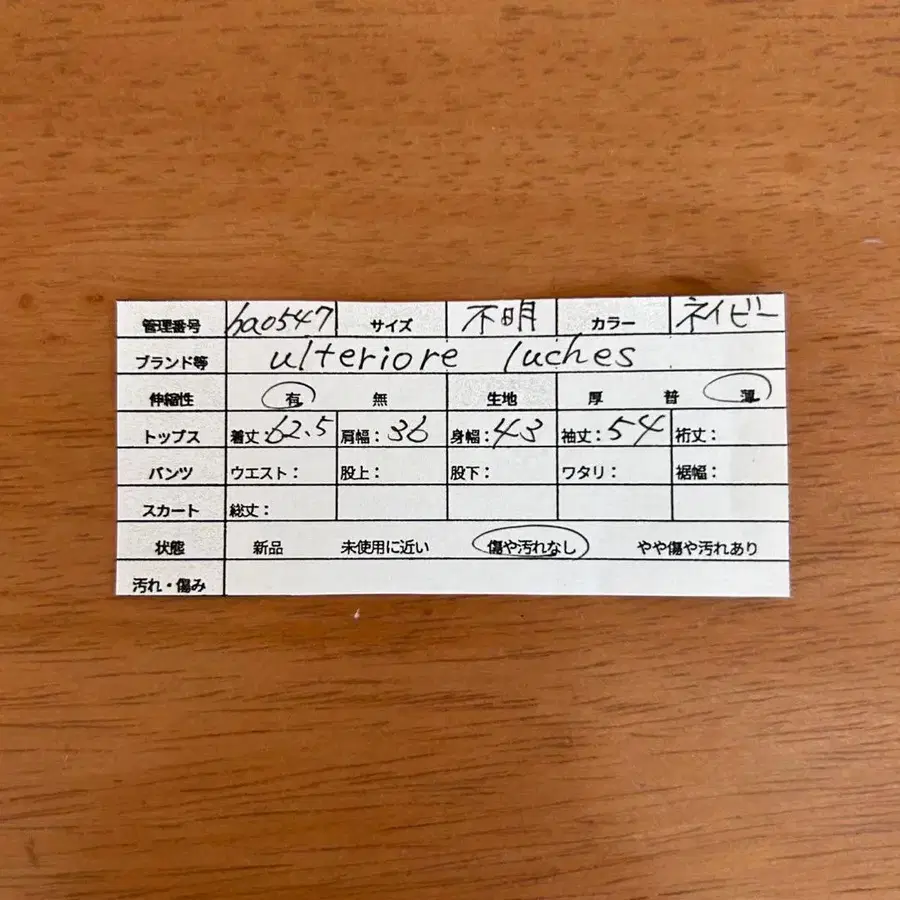 管理番号 ha0547 サイズ 不明 カラー ネイビー
ブランド等 ulteriore luches
伸縮性 有 無 生地 厚 普 薄
トップス 着丈:62.5 肩幅:36 身幅:43 袖丈:54 裄丈:
パンツ ウエスト: 股上: 股下: ワタリ: 裾幅:
スカート 総丈:
状態 新品 未使用に近い 傷や汚れなし やや傷や汚れあり
汚れ・傷み